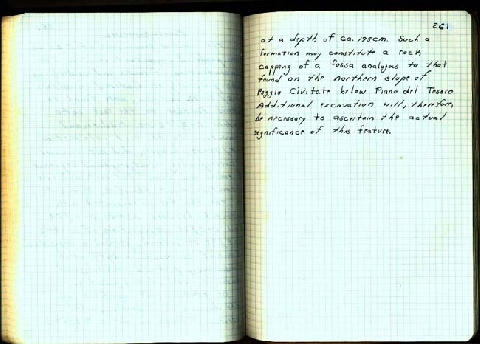 261
at a depth of ca. 195cm. Such a
formation may constitute a rock
capping of a fossa analogous to that
found on the northern slope of
Poggio Civitate below Piano del Tesoro.
Additional excavation will, therefore,
be necessary to ascertain the actual
significance of this feature.